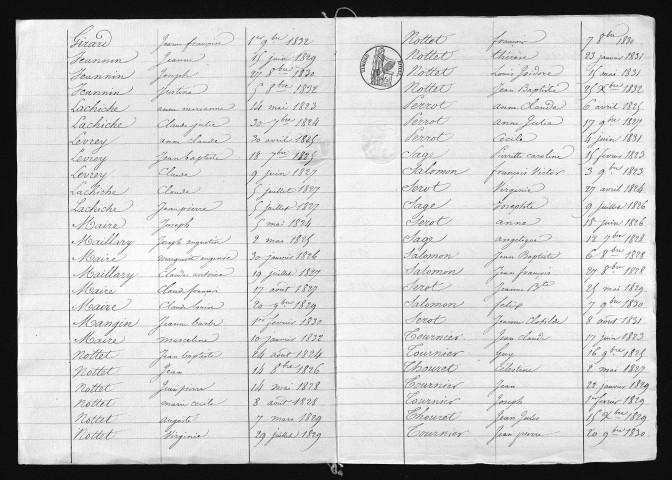 Girard Jean françois 1er 9bre 1832
Jeannin Jeanne 15 juin 1829
Jeannin Joseph 27 8bre 1830
Jeannin Justine 5 8bre 1832
Lachiche anne marianne 14 mai 1823
Lachiche Claude Julie 30 7bre 1824
Levrey anne claude 30 avril 1825
Levrey Jean baptiste 18 7bre 1825
Levrey Claude 9 juin 1827
Lachiche Claude 5 juillet 1827
Lachiche Jeanpierre 5 juillet 1827
Maire Joseph 5 mai 1824
Maillary Joseph augustin 2 mai 1825
Maire marguerite eugénie 30 janvier 1826
Maillary Claude antoine 19 juillet 1827
Maire Claude françois 17 août 1827
Maire Claude louis 20 9bre 1829
Mangin Jeanne barbe 1er fevrier 1830
Maire marceline 10 janvier 1832
Nottet Jean baptiste 24 août 1824
Nottet Jean 14 8bre 1826
Nottet Jean pierre 14 mai 1828
Nottet marie cecile 8 août 1828
Nottet auguste 7 mars 1829
Nottet Virginie 29 juillet 1829
Nottet françois 7 8bre 1830
Nottet thérèse 23 janvier 1831
Nottet Louis Isidore 15 mai 1831
Nottet Jean Baptiste 25 Xbre 1832
Perrot anne Claude 6 avril 1825
Perrot anne Julie 17 9bre 1827
Perrot Cécile 4 juin 1831
Sage Pierrette caroline 15 fevrier 1823
Salomon françois Victor 3 9bre 1823
Serot Virginie 27 avril 1824
Sage Josephte 9 juillet 1826
Serot anne 18 juin 1826
Sage angelique 12 7bre 1828
Salomon Jean Baptiste 6 8bre 1828
Salomon Jean françois 27 9bre 1828
Serot Jeanne Bte 25 mai 1829
Salomon felix 7 9bre 1830
Serot Jeanne Clotilde 8 août 1831
Tournier Jean Claude 17 juin 1823
Tournier Guy 26 9bre 1825
Thouret Celestine 2 mai 1827
Tournier Jean 22 janvier 1829
Tournier Joseph 8 fevrier 1829
Thouret Jean Jules 15 Xbre 1829
Tournier Jean pierre 20 9bre 1830